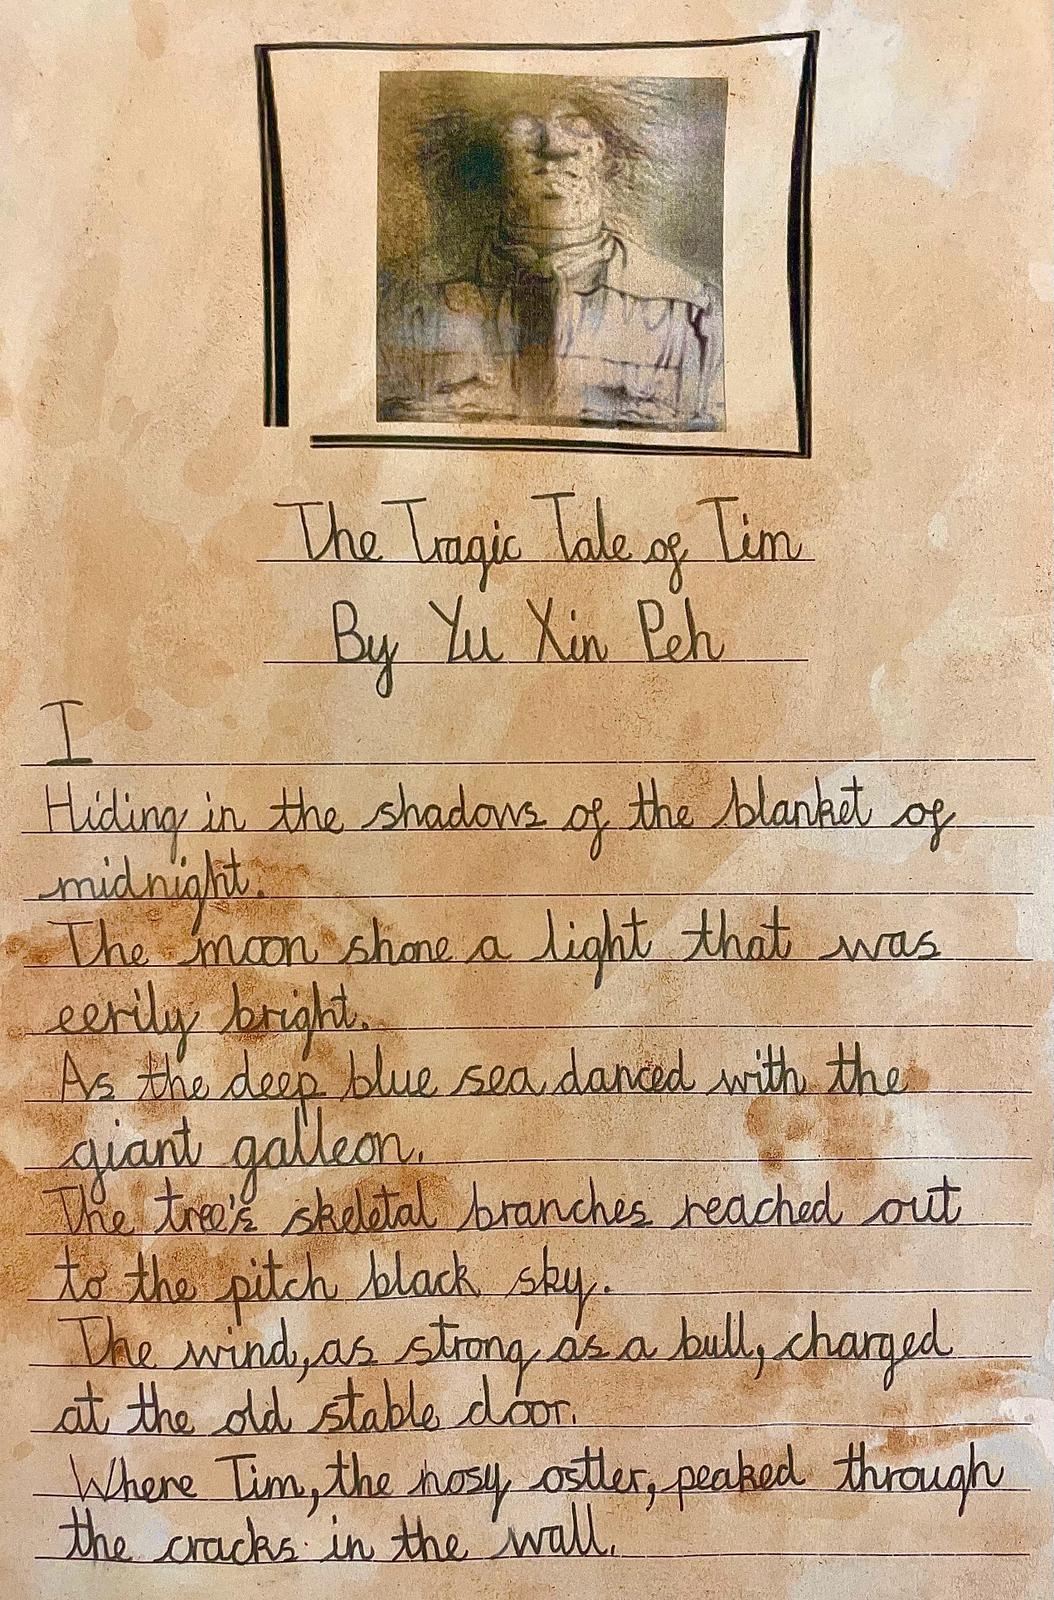 The Tragic Tale of Tim
By Yu Xin Peh
I
Hiding in the shadows of the blanket of
midnight.
The moon shone a light that was
eerily bright.
As the deep blue sea danced with the
giant galleon.
The tree's skeletal branches reached out
to the pitch black sky.
The wind, as strong as a bull, charged
at the old stable door.
Where Tim, the nosy ostler, peaked through
the cracks in the wall.